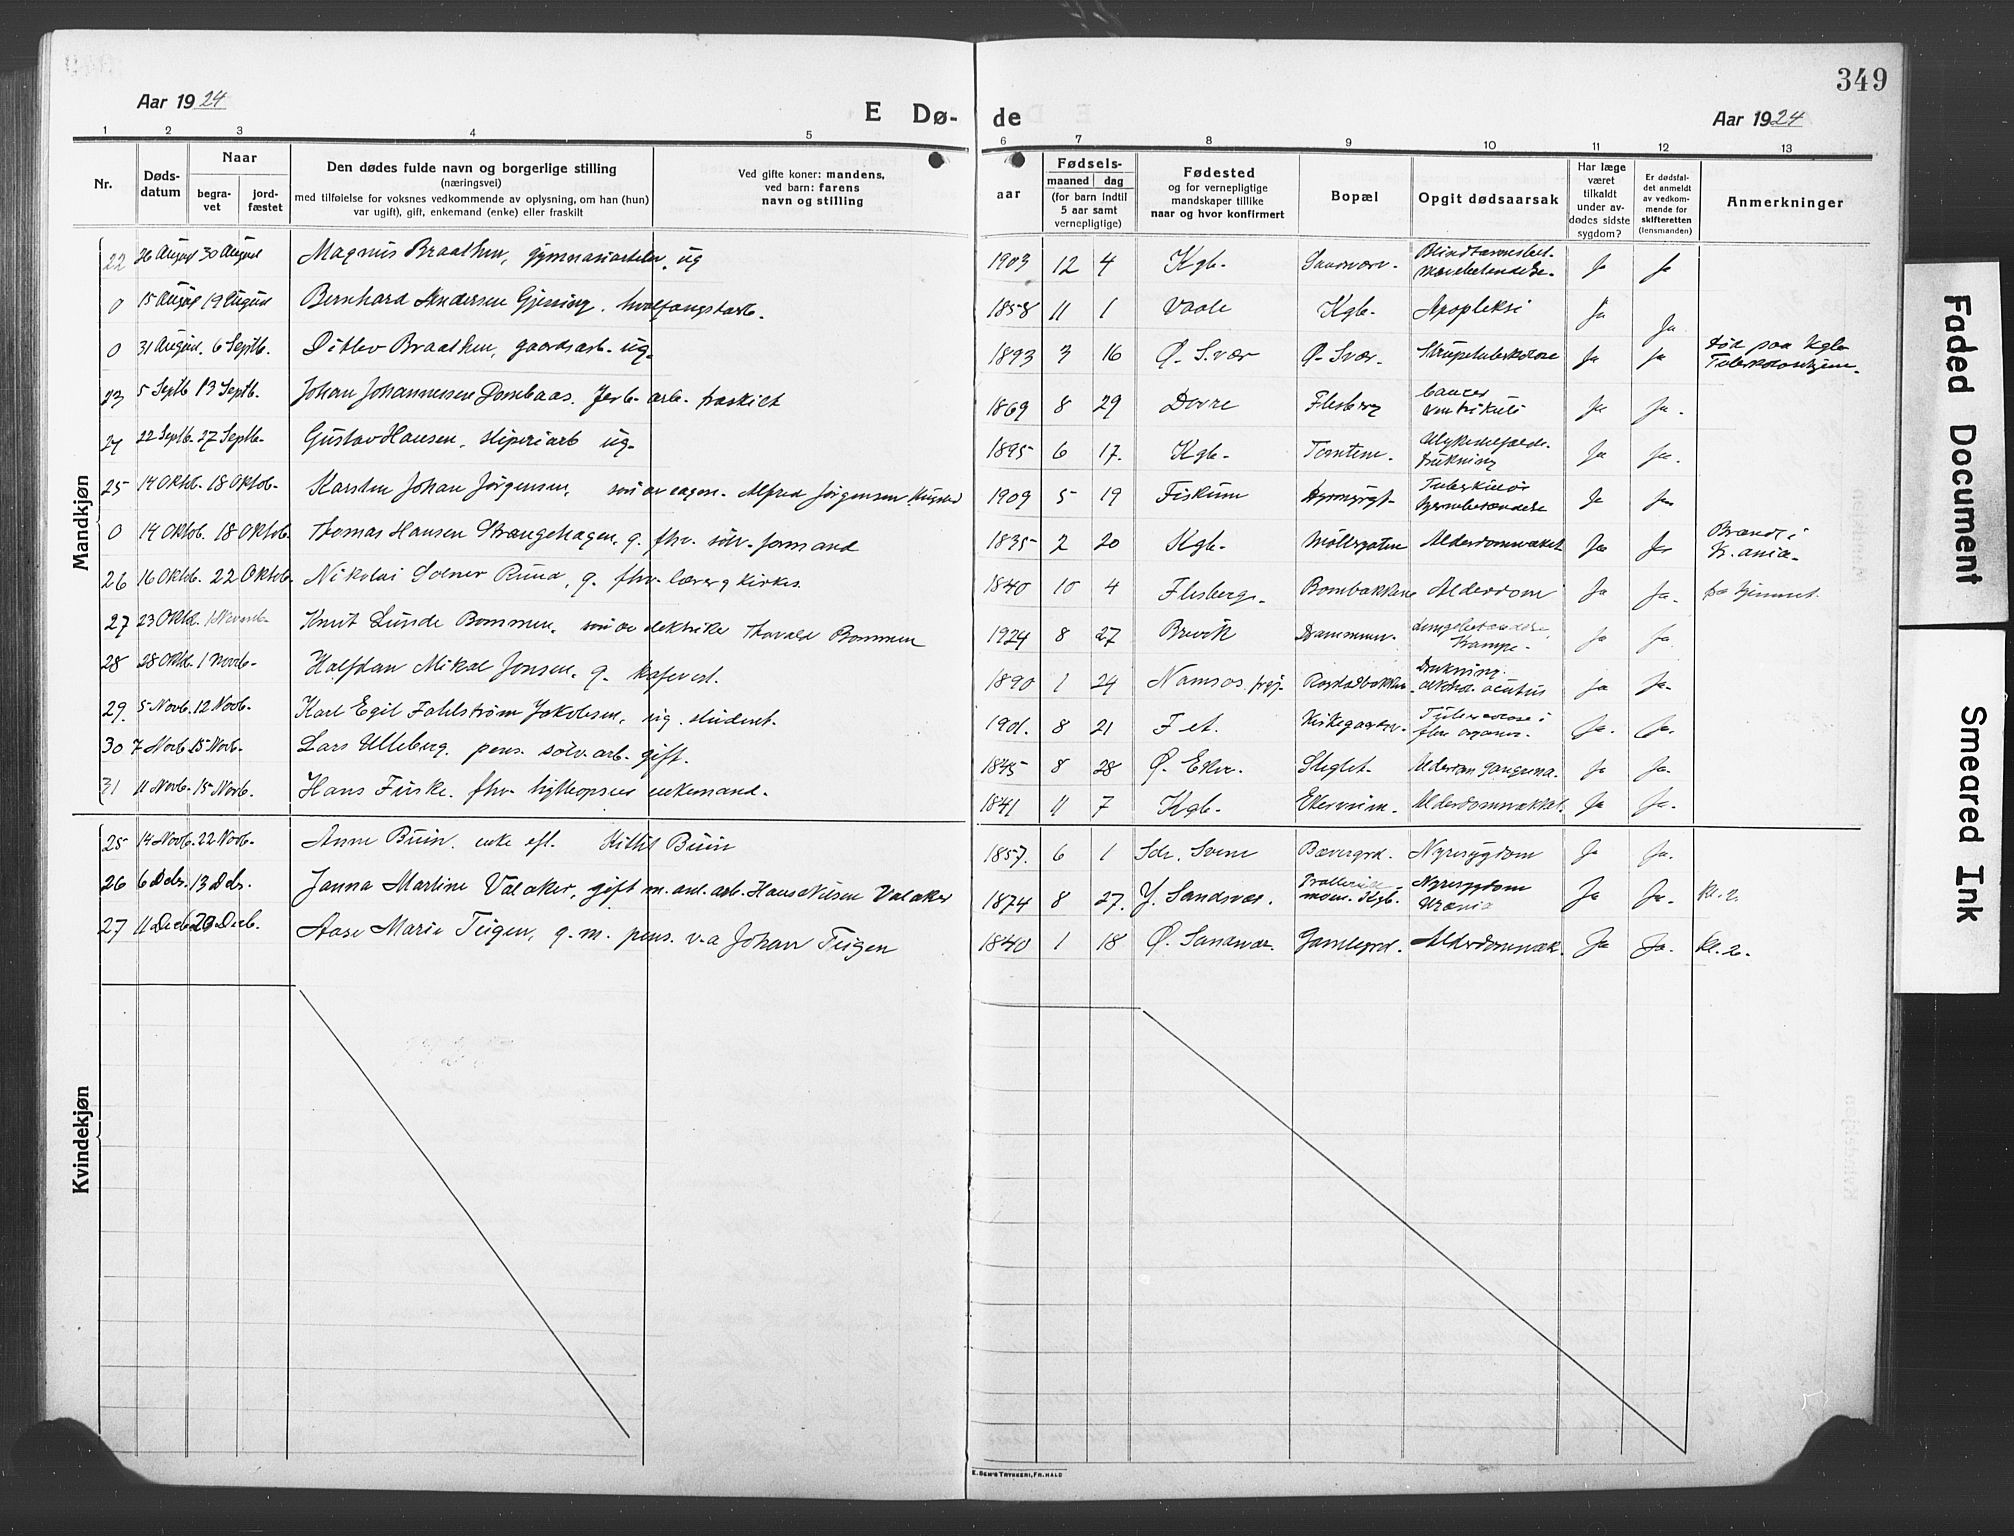 349
Aar 1924
E Dø-
de
Aar 1924
1 2 3 4 5 6 7 8 9 10 11 12 13
Nr.
Døds-
datum
Naar
begra-
vet
jord-
fæstet
Den dødes fulde navn og borgerlige stilling
(næringsvei)
med tilføielse for voksnes vedkommende av oplysning, om han (hun)
var ugift), gift, enkemand (enke) eller fraskilt
Ved gifte koner: mandens,
ved barn: farens
navn og stilling
aar
Fødsels-
maaned dag
(for barn indtil
5 aar samt
vernepligtige)
Fødested
og for vernepligtige
mandskaper tillike
naar og hvor konfirmert
Bopæl
Opgit dødsaarsak
Har læge
været
tilkaldt
under av-
dødes sidste
sygdom?
Er dødsfal-
det anmeldt
av vedkom-
mende for
skifteretten
(lensmanden)
Anmerkninger
Mandkjøn
22 26 August 30 August Magnus Braathen, ug 1903 12 4 Kgb. Sandsvær. Ja Ja
0 15 August 19 August Bernhard Andersen Gjessing, hvalfangstarb. 1858 11 1 Vaale Kgb. Apopleksi Ja Ja
0 31 August. 6 Septb. Ditlev Braathen, gaardsarb. ug. 1893 3 16 Ø. S.vær Ø. Svær. Struptuberkulose Ja Ja død paa Kgb
Tuberkulosehjem.
23 5 Septb 13 Septb. Johan Johannessen Dombaas. Jerb. arb. fraskilt 1869 8 29 Dovre Flesberg Cancer
ventrikuli Ja Ja.
24 22 Septb. 27 Septb. Gustav Hansen, sliperiarb ug. 1895 6 17. Kgb. Tomtene. Ulykkestilfælde
Drukning Ja Ja.
25 14 Oktb. 18 Oktob. Karsten Johan Jørgensen, søn av Alfred Jørgensen 1909 5 19 Fiskum Tuberkuløs
hjernebetændelse Ja Ja
0 14 Oktob. 18 Oktob. Thomas Hansen Strangehagen, g. fhv. sølv. formand 1835 2 20 Kgb. Møllegaten Alderdomsvakhet Ja Ja Brændt i
Kr.ania.
26 16 Oktb. 22 Oktob. Nikolai Solner Ruud, g. fhv. lærer g kirkes. 1840 10 4 Flesberg. Bombakkene Alderdom Ja Ja. fra hjemmet.
27 23 Oktb. 1 Novemb. Knut Lunde Bommen, søn av elektriker Thorvald Bommen 1924 8 27 Brevik Drammen. Lungebetændelse,
Krampe. Ja Ja.
28 28 Oktb. 1 Novb. Halfdan Mikal Jonsen, g. kafevert. 1890 1 24 Namsos prgj. Drukning. Ja Ja.
29. 5 Novb. 12 Novb. Karl Egil Fahlstrøm Jakobsen, ug. student. 1901. 8 21 Fet. Kirkegaarden. Tuberkulose i
flere organer. Ja. Ja.
30 7 Novb. 15 Novb. Lars Ulleberg. pens. sølv. arb. gift. 1845 8 28 Ø. Eker. Steglet. Alderdom gangrena. Ja Ja.
31 11 Novb. 15 Novb. Hans Funke. fhv. enkemand. 1841 11 7 Kgb. Alderdomsvakhet. Ja Ja.
Kvindekjøn
25 14 Novb. 22 Novb. Anne Buin. enke eft. Kittil Buin 1857. 6 1 Sdr. Svene Bævergrd. Nyresygdom Ja Ja.
26 6 Debr. 13 Debr. Janna Martine Valaker, gift m. anl. arb. Hans Nilsen Valaker 1874 8 27. Y. Sandsvær. Kgb. Nyresygdom
Uræmi Ja Ja. kl. 2.
27 11 Decb. 20 Decb. Aase Marie Teigen, g. m. pens. v.a Johan Teigen 1840 1 18 Ø. Sandsvær. Gamlegrd. Alderdomsvak. Ja Ja. kl. 2.
E. SEM'S TRYKKERI, FR. HALD
Faded Document
Smeared Ink